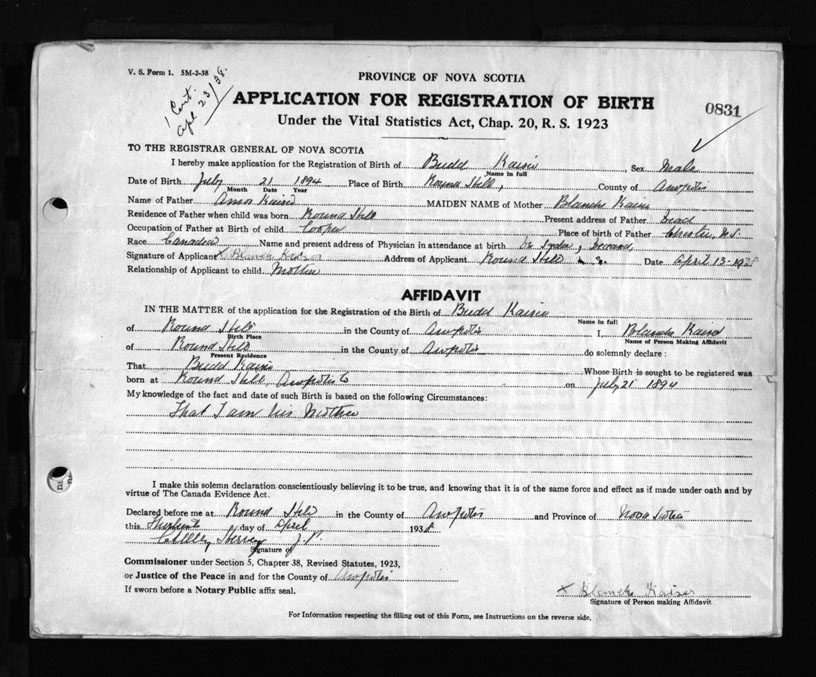 V. S. Form 1. 5M-2-38
1 Cert.
Apl 23/38.
PROVINCE OF NOVA SCOTIA
APPLICATION FOR REGISTRATION OF BIRTH
0831
Under the Vital Statistics Act, Chap. 20, R. S. 1923
TO THE REGISTRAR GENERAL OF NOVA SCOTIA
I hereby make application for the Registration of Birth of Budd Kaiser, Sex Male
Name in full
Date of Birth July 21 1894 Place of Birth Round Hill, County of Anapolis
Month Date Year
Name of Father Kaiser MAIDEN NAME of Mother Blanche Kaiser
Residence of Father when child was born Round Hill Present address of Father Dead
Occupation of Father at Birth of child Cooper Place of birth of Father Chester, N.S.
Race Canadian Name and present address of Physician in attendance at birth Dr
Signature of Applicant x Blanche Kaiser Address of Applicant Round Hill N. S. Date April 13-1938
Relationship of Applicant to child. Mother
AFFIDAVIT
IN THE MATTER of the application for the Registration of the Birth of Budd Kaiser
Name in full
of Round Hill in the County of Anapolis I, Blanche Kaiser
Birth Place Name of Person Making Affidavit
of Round Hill in the County of Anapolis do solemnly declare :
Present Residence
That Budd Kaiser Whose Birth is sought to be registered was
born at Round Hill, Anapolis Co on July 21 1894
My knowledge of the fact and date of such Birth is based on the following Circumstances:
That I am his Mother
I make this solemn declaration conscientiously believing it to be true, and knowing that it is of the same force and effect as if made under oath and by
virtue of The Canada Evidence Act.
Declared before me at Round Hill in the County of Anapolis and Province of Nova Scotia
this day of April 1938
J.P.
Signature of
Commissioner under Section 5, Chapter 38, Revised Statutes, 1923,
or Justice of the Peace in and for the County of Anapolis
If sworn before a Notary Public affix seal.
x Blanche Kaiser
Signature of Person making Affidavit
For Information respecting the filling out of this Form, see Instructions on the reverse side.